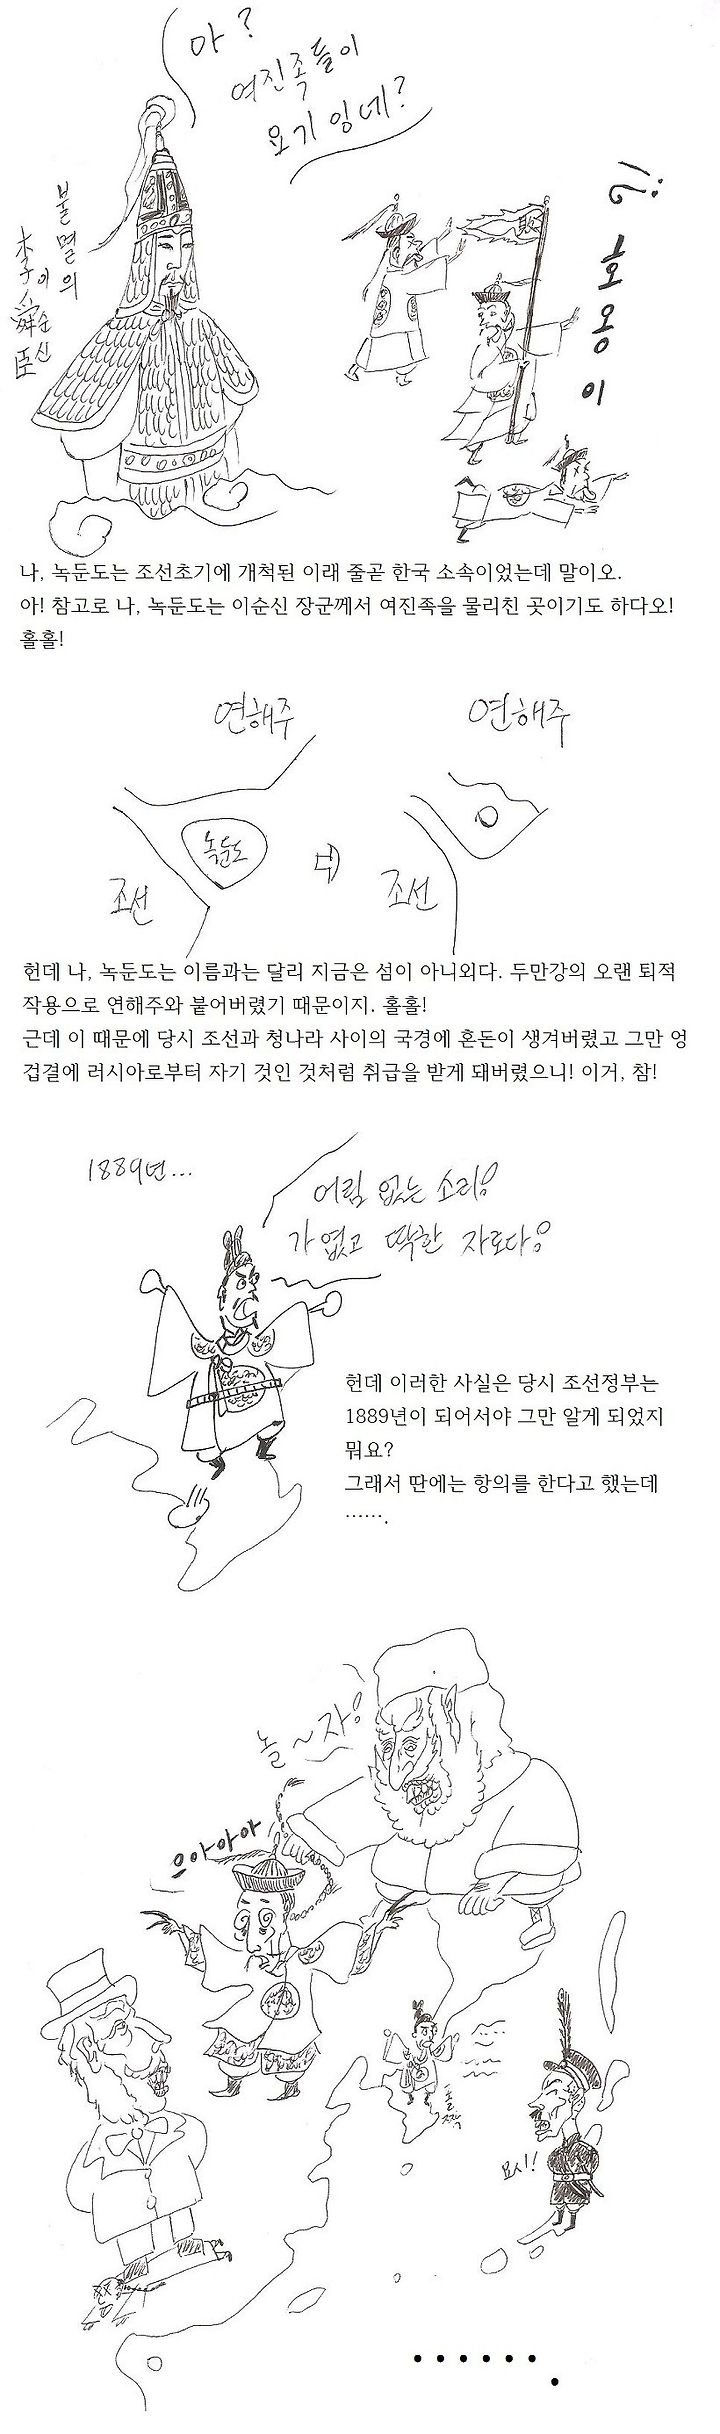 마?
여진족들이
요기 잉네?
불멸의
李舜臣
이순신
敗
호옹이
나, 녹둔도는 조선초기에 개척된 이래 줄곧 한국 소속이었는데 말이오.
아! 참고로 나, 녹둔도는 이순신 장군께서 여진족을 물리친 곳이기도 하다오!
홀홀!
연해주
녹둔도
조선
연해주
조선
헌데 나, 녹둔도는 이름과는 달리 지금은 섬이 아니외다. 두만강의 오랜 퇴적
작용으로 연해주와 붙어버렸기 때문이지. 홀홀!
근데 이 때문에 당시 조선과 청나라 사이의 국경에 혼돈이 생겨버렸고 그만 엉
겁결에 러시아로부터 자기 것인 것처럼 취급을 받게 돼버렸으니! 이거, 참!
1889년...
어림 없는 소리!
가엾고 딱한 자로다!
헌데 이러한 사실은 당시 조선정부는
1889년이 되어서야 그만 알게 되었지
뭐요?
그래서 딴에는 항의를 한다고 했는데
…….
놀~자!
으아아아
훌쩍
요시!!
.......